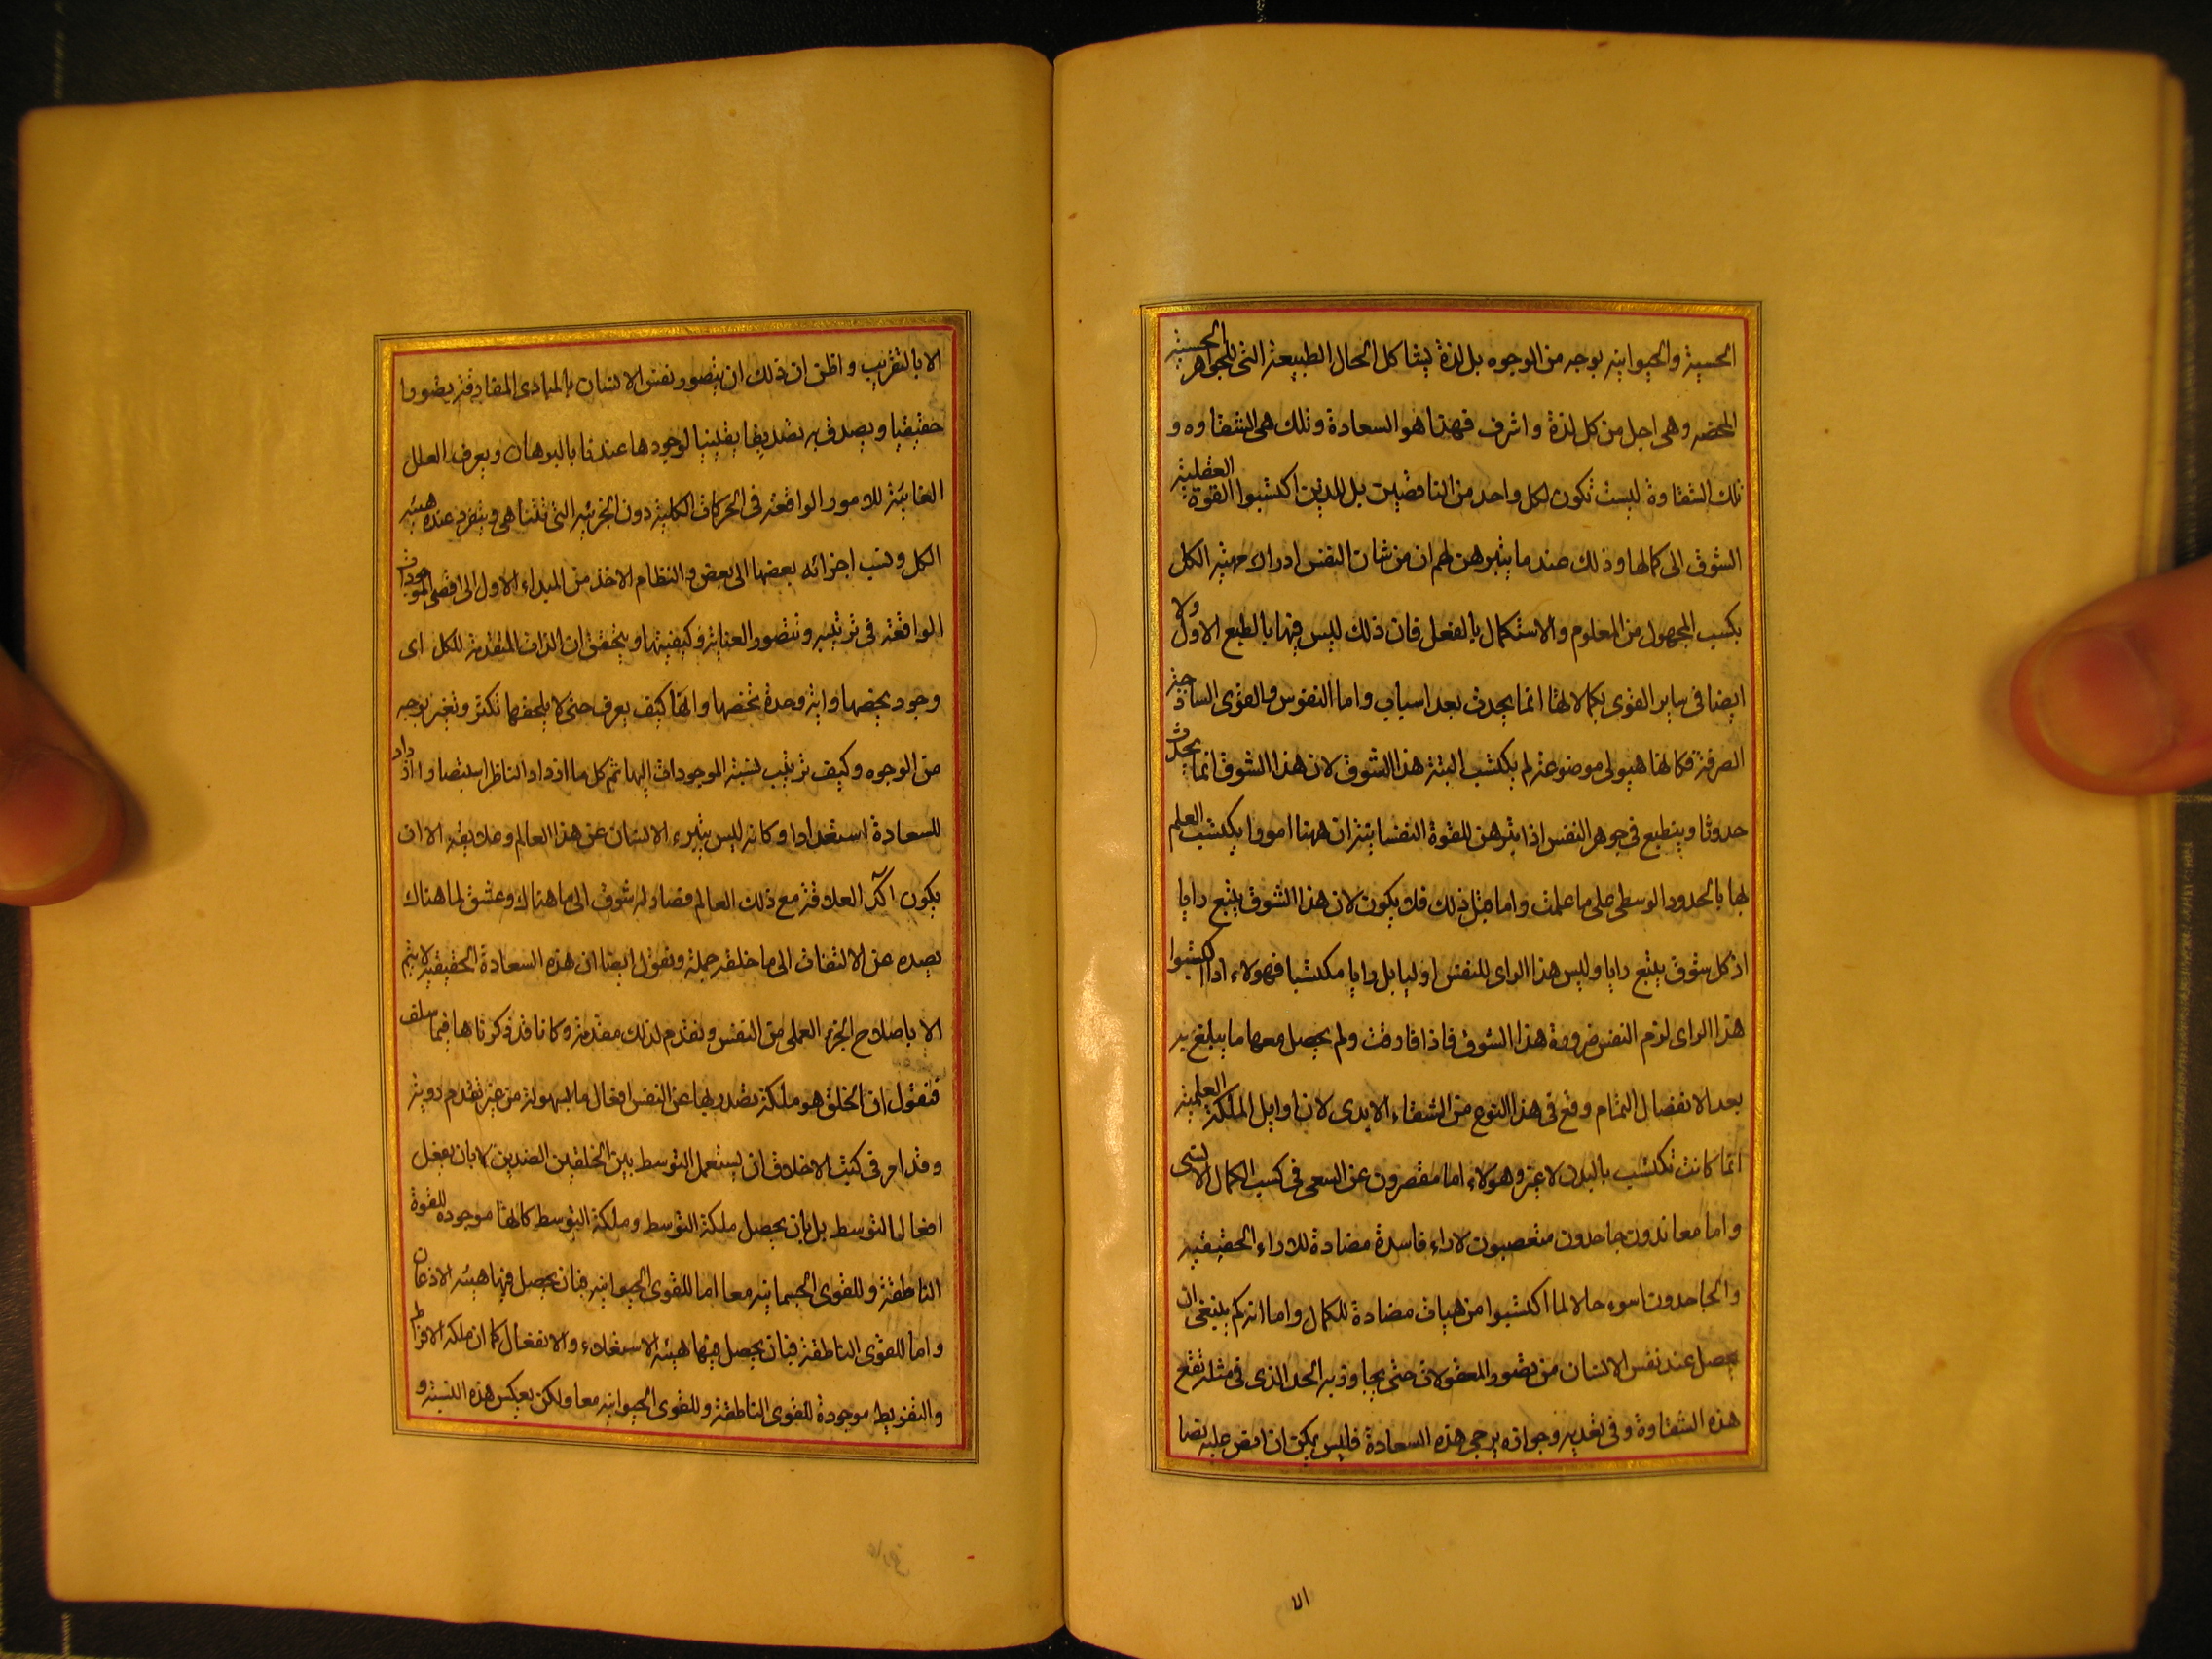 الحسية والحيوانية بوجه من الوجوه بل لذة يشاكل الحال الطبيعة التى للجواهر الحسية
المحضه وهى اجل من كل لذة واشرف فهذا هو السعادة وتلك هى الشقاوه و
تلك الشقاوة ليست تكون لكل واحد من الناقصين بل للذين اكتسبوا القوة العقلية
الشوق الى كمالها وذلك عند ما يتبرهن لهم ان من شان النفس ادراك مهية الكل
بكسب المجهول من المعلوم والاستكمال بالفعل فان ذلك ليس فيها بالطبع الاول ولا
ايضا فى ساير القوى بكمالاتها انما يحدث بعد اسباب واما النفوس والقوى الساذجة
الصرفة فكانها هيولى موضوعة لم يكتسب البتة هذا الشوق لان هذا الشوق انما يحدث
حدوثا وينطبع فى جوهر النفس اذا يتبرهن للقوة النفسانية ان ههنا امورا يكتسب العلم
لها بالحدود الوسطى على ما علمت واما قبل ذلك فلا يكون لان هذا الشوق يتبع رايا
اذ كل شوق يتبع رايا وليس هذا الراى للنفس اوليا بل رايا مكتسبا فهولاء اذا اكتسبوا
هذا الراى لزم النفس ضرورة هذا الشوق فاذا فارقت ولم يحصل معها ما يبلغ به
بعد الانفصال التمام وقع فى هذا النوع من الشقاء الابدى لان اوايل الملكة العلمية
انما كانت تكتسب بالبدن لا غير وهولاء اما مقصرون عن السعى فى كسب الكمال الانسى
واما معاندون جاحدون متعصبون لاراء فاسدة مضادة للاراء الحقيقيه
والجاحدون اسوء حالا لما اكتسبوا من هيات مضادة للكمال واما انه كم ينبغى ان
يحصل عند نفس الانسان من تصور المعقولات حتى يجاوز به الحد الذى فى مثله تقع
هذه الشقاوة وفى تعديه وجوازه يرجى هذه السعادة فليس يمكن ان انص عليه نصا
٧١
الا بالتقريب واظن ان ذلك ان يتصور نفس الانسان المبادى المفارقة تصورا
حقيقيا ويصدق به تصديقا يقينيا لوجودها عندنا بالبرهان ويعرف العلل
الغائية للامور الواقعة فى الحركات الكلية دون الجزئيه التى تتناهى ويتقرر عنده هيئه
الكل ونسب اجزائه بعضها الى بعض والنظام الاخذ من المبداء الاول الى اقصى الموجودات
الواقعة فى ترتيبه وتتصور العناية وكيفيتها ويتحقق ان الذات المتقدمة للكل اى
وجود يخصها واية وحدة تخصها وانها كيف يعرف حتى لا يلحقها تكثر وتغير بوجه
من الوجوه وكيف ترتيب نسبة الموجودات اليها ثم كل ما ازداد الناظر استبصارا ازداد
للسعادة استعدادا وكانه ليس يتبرء الانسان عن هذا العالم وعلايقه الا ان
يكون اكد العلاقة مع ذلك العالم فصار له شوق الى ما هناك وعشق لما هناك
يصده عن الالتفات الى ما خلفه جملة ونقول ايضا ان هذه السعادة الحقيقيه لا يتم
الا باصلاح الجزء العملى من النفس ونقدم لذلك مقدمة وكانا قد ذكرناها فيما سلف
فنقول ان الخلق هو ملكة تصدر بها عن النفس افعال ما بسهولة من غير تقدم روية
وقد امر فى كتب الاخلاق ان يستعمل التوسط بين الخلقين الضدين لا بان يفعل
افعال التوسط بل بان يحصل ملكة التوسط وملكة التوسط كانها موجوده للقوة
الناطقة وللقوى الجسمانيه معا اما للقوى الحيوانيه فبان يحصل فيها هيئه الاذعان
واما للقوى الناطقة فبان يحصل فيها هيئه الاستعلاء والانفعال كما ان ملكه الافراط
والتفريط موجودة للقوى الناطقة وللقوى الحيوانيه معا ولكن بعكس هذه النسبة و